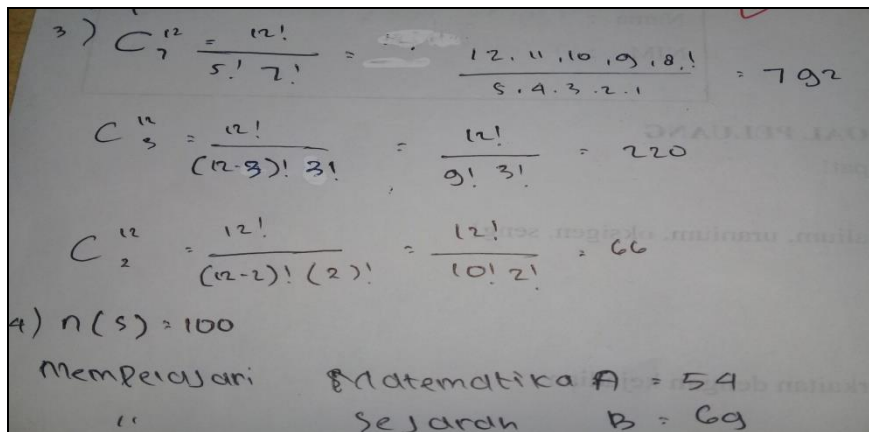 3) C 12 7 = 12! / 5! 7! = 12. 11 .10 .9 .8.! / 5.4.3.2.1 = 792
C 12 3 = 12! / (12-3)! 3! = 12! / 9! 3! = 220
C 12 2 = 12! / (12-2)! (2)! = 12! / 10! 2! = 66
4) n(S) = 100
Mempelajari Matematika A = 54
" Sejarah B = 69